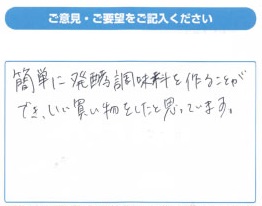 ご意見・ご要望をご記入ください
簡単に発酵調味料を作ることが
でき、いい買い物をしたと思っています。